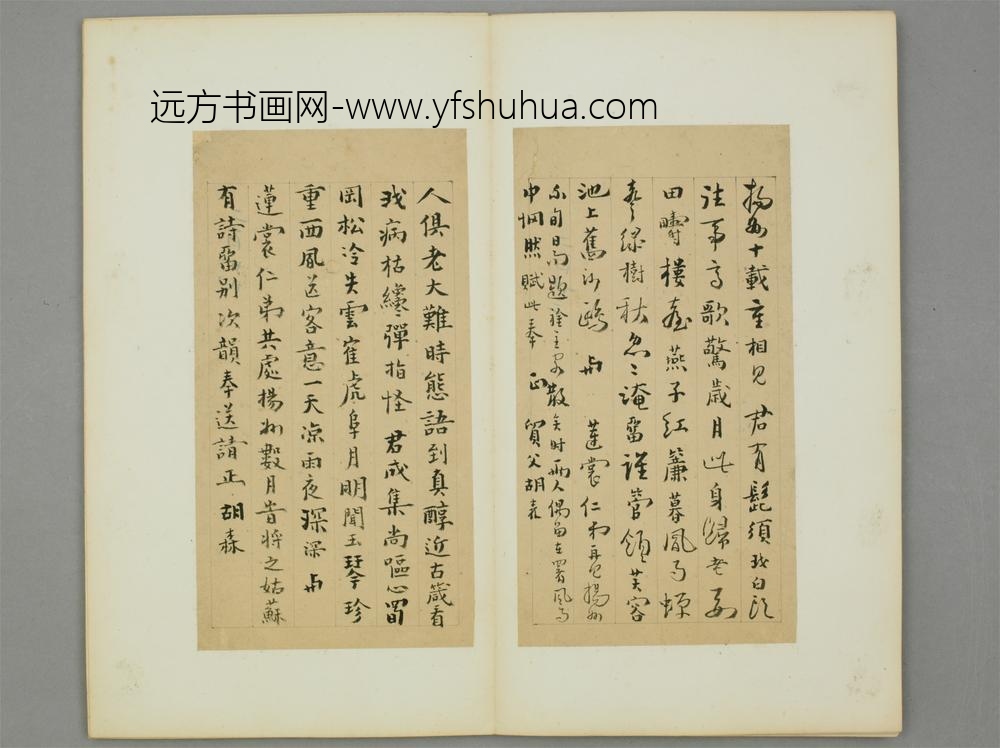 远方书画网-www.yfshuhua.com
揚州十載重相見君有髭須我白頭
往事高歌驚歲月此身歸老
田疇樓臺燕子紅簾暮風雨
綠樹秋忽忽淹留誰管領芙容
池上舊沙鷗 與蓮裳仁弟再見揚州
不旬日而題襟主客散矣時兩人偶留在署風雨
中惘然賦此奉正 質父胡森
人俱老大難時態語到真醇近古箴看
我病枯纔彈指怪君成集尚嘔心蜀
岡松冷失雲崔虎阜月明聞玉琴珍
重西風送客意一天涼雨夜深深 與
蓮裳仁弟共處揚州數月昔將之姑蘇
有詩留别次韻奉送請正 胡森